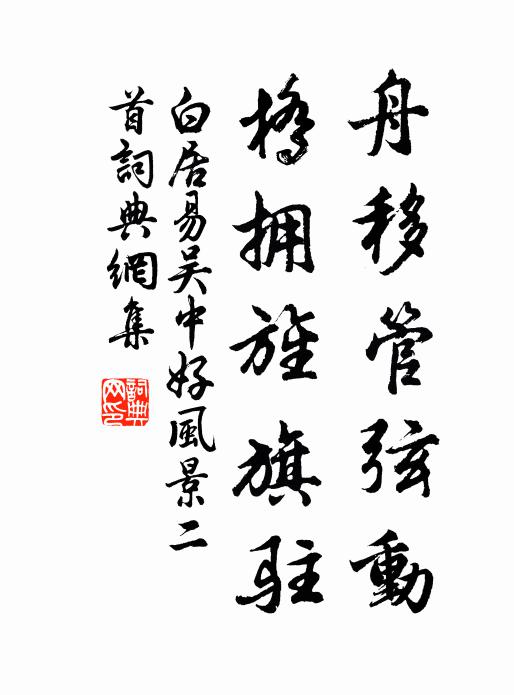 舟移管弦動
橋拥旌旗駐
白居易吴中好風景二
首詞典網集
詞典网印